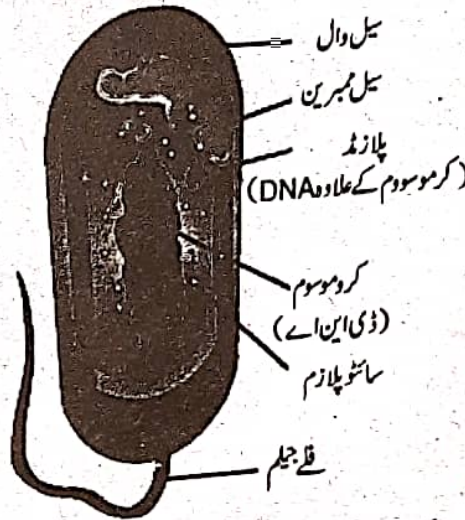 سیل وال
سیل ممبرین
پلازمڈ
(کرموسووم کے علاوہ DNA)
کروموسوم
(ڈی این اے)
سائٹوپلازم
فلے جیلم